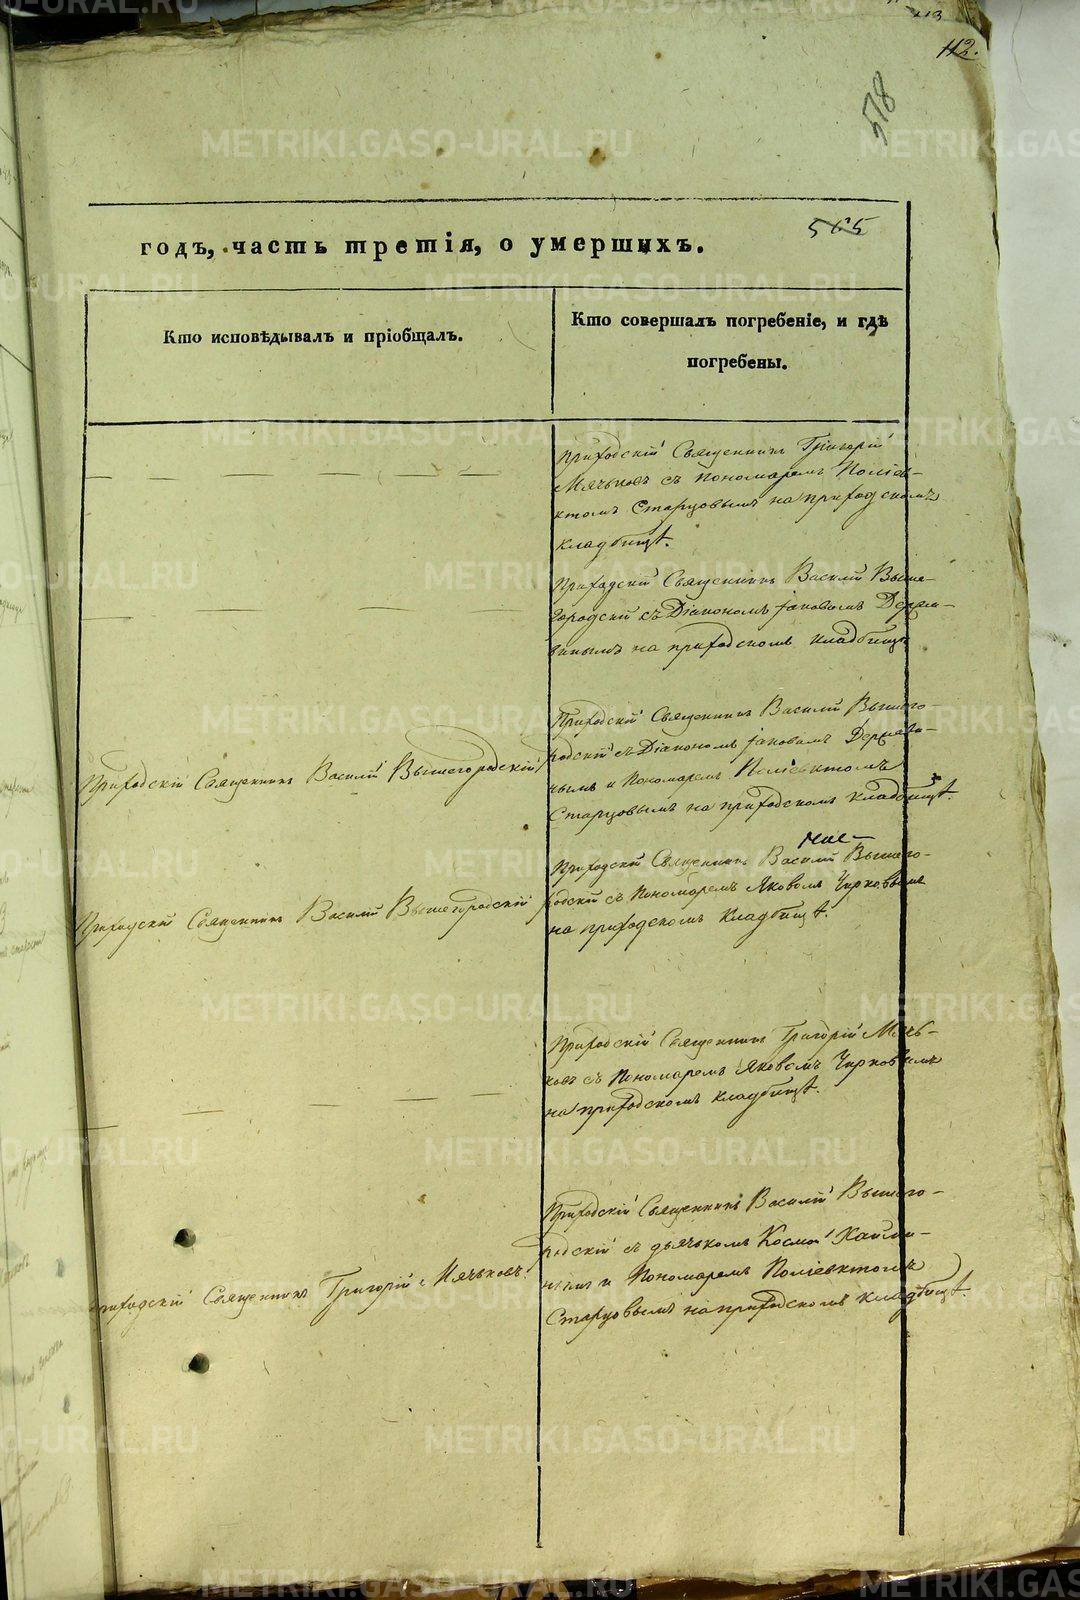 112.
518
565
годъ, часть третія, о умершихъ.
Кто исповѣдывалъ и пріобщалъ.
Кто совершалъ погребеніе, и гдѣ
погребены.
Приходскій Священникъ Григорій
Мячьковъ съ пономаремъ Поліев-
ктомъ Старцовымъ на приходскомъ
кладбищѣ.
Приходскій Священникъ Василій Выше-
городскій съ Діакономъ Іаковомъ Держа-
винымъ на приходскомъ кладбищѣ
Приходскій Священникъ Василій Вышегородскій
Приходскій Священникъ Василій Вышего
родскій съ Діакономъ Іаковомъ Держави-
нымъ и Пономаремъ Поліевктомъ
Старцовымъ на приходскомъ кладбищѣ.
Приходскій Священникъ Василій Вышегородскій
Приходскій Священникъ Василій Вышего-
родскій съ Пономаремъ Яковомъ Чирковымъ
на приходскомъ кладбищѣ.
Приходскій Священникъ Григорій Мячь-
ковъ съ Пономаремъ Яковомъ Чирковымъ
на приходскомъ кладбищѣ.
Приходскій Священникъ Григорій Мячьковъ.
Приходскій Священникъ Василій Вышего-
родскій съ дьячькомъ Космой
нымъ и Пономаремъ Поліевктомъ
Старцовымъ на приходскомъ кладбищѣ.
METRIKI.GASO-URAL.RU